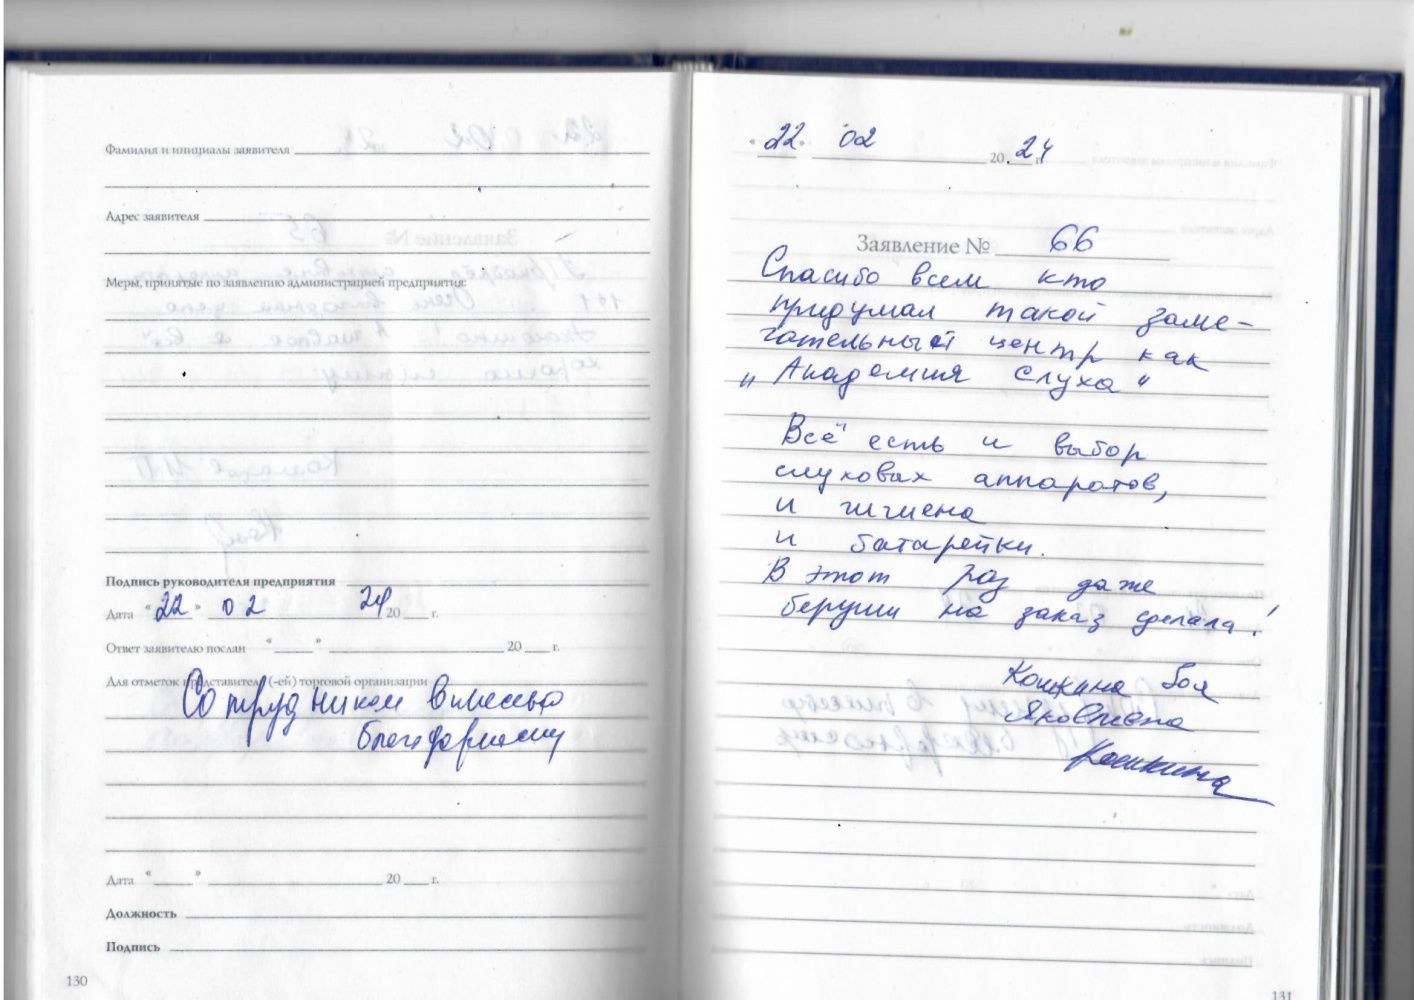 Фамилия и инициалы заявителя
Адрес заявителя
Меры, принятые по заявлению администрацией предприятия:
Подпись руководителя предприятия
Дата "22" 02 24 20 г.
Ответ заявителю послан " " 20 г.
Для отметок представителя (-ей) торговой организации
Сотрудникам
благодарность
Дата " " 20 г.
Должность
Подпись
130
22. 02 20 24 г.
Заявление № 66
Спасибо всем кто
придумал такой заме-
чательный центр как
„Академия слуха"
Всё есть и выбор
слуховых аппаратов,
и гигиена
и батарейки.
В этот раз даже
беруши на заказ сделала!
Кошкина
Яковлевна
Кошкина
131